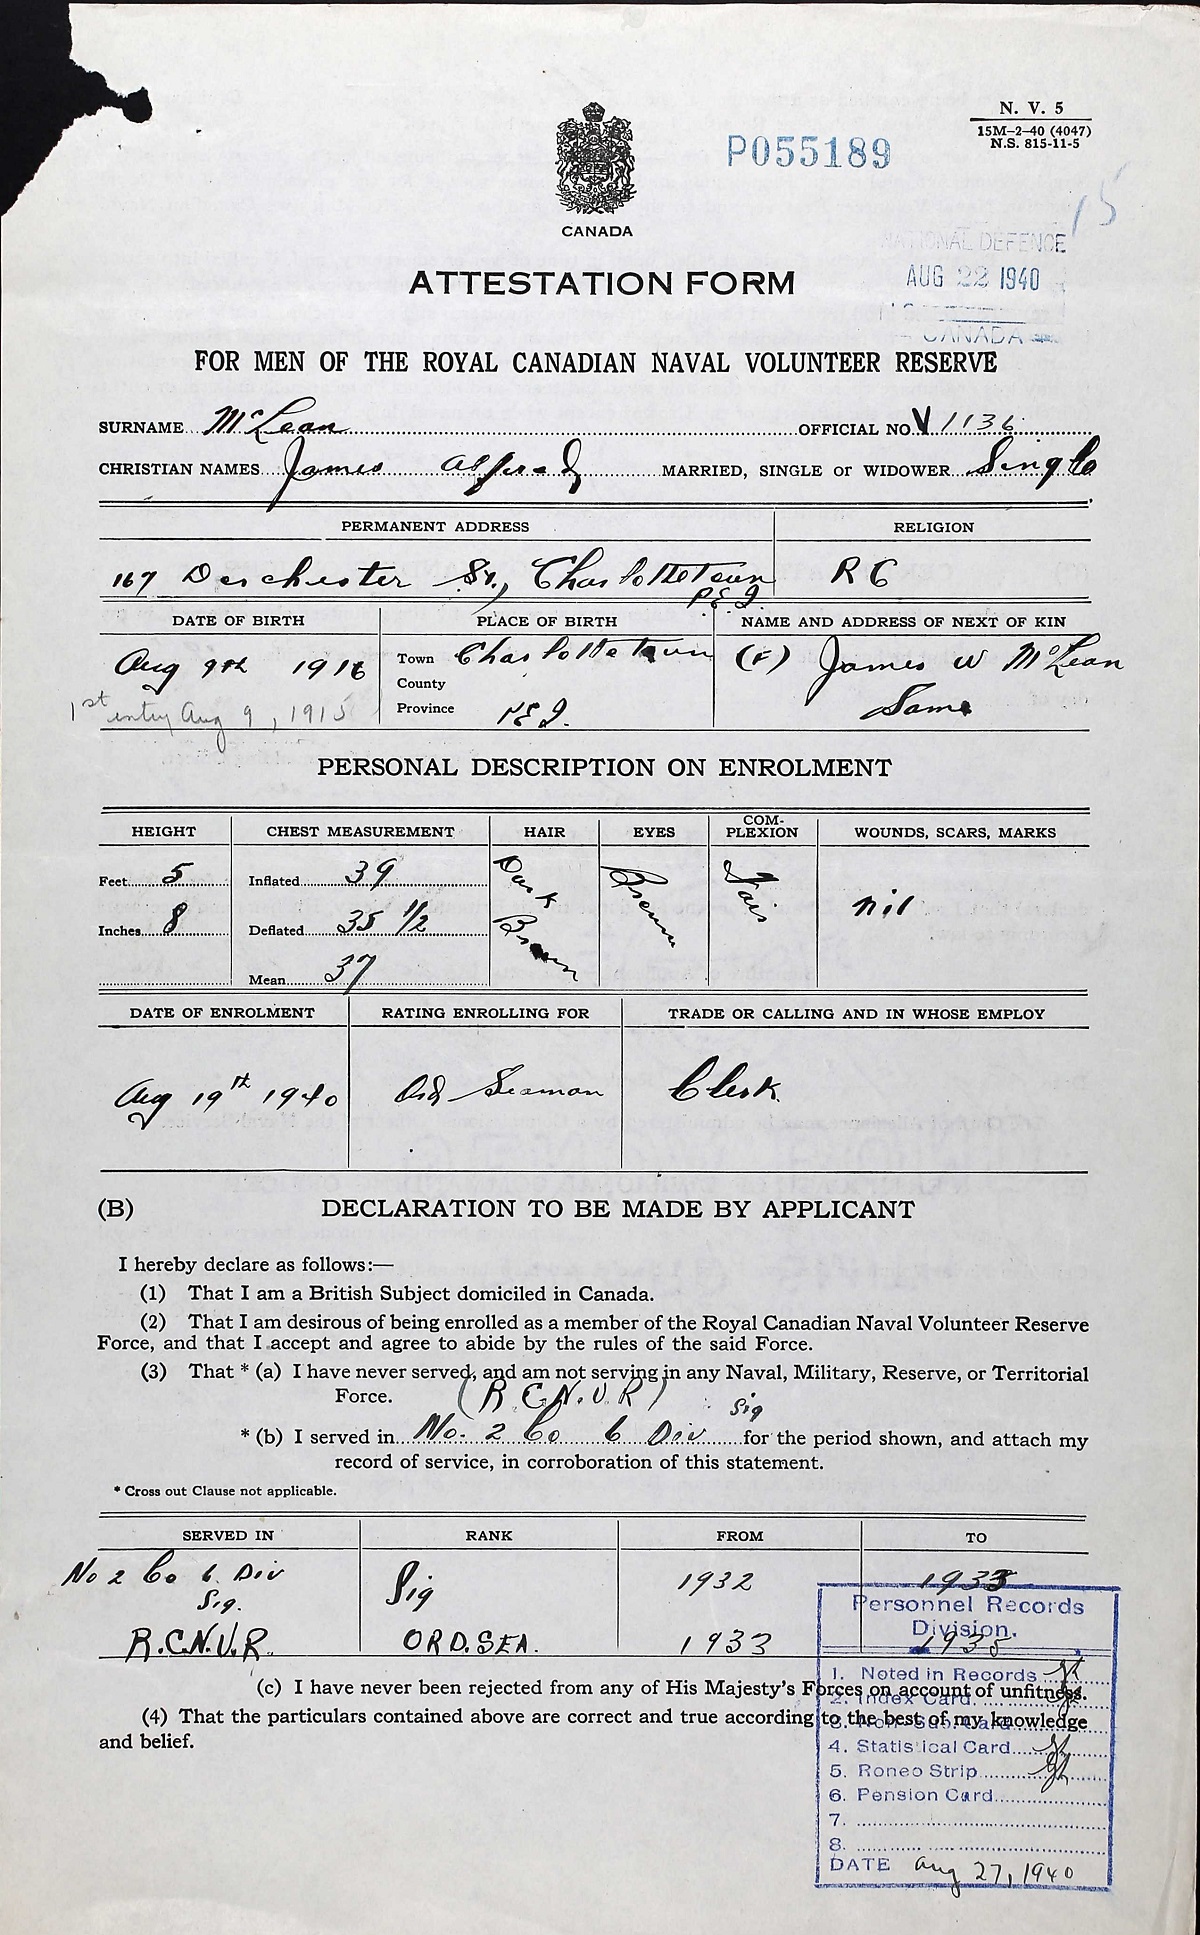 N. V. 5
15M-2-40 (4047)
N.S. 815-11-5
P055189
15
CANADA
NATIONAL DEFENCE
AUG 22 1940
CANADA
ATTESTATION FORM
FOR MEN OF THE ROYAL CANADIAN NAVAL VOLUNTEER RESERVE
SURNAME McLean OFFICIAL NO V 1136
CHRISTIAN NAMES James Alfred MARRIED, SINGLE or WIDOWER Single
PERMANENT ADDRESS RELIGION
167 Dorchester St., Charlottetown R C
P.E.I.
DATE OF BIRTH PLACE OF BIRTH NAME AND ADDRESS OF NEXT OF KIN
Aug 9th 1916 Town Charlottetown (F) James W McLean
County Same
1st entry Aug 9, 1915 Province P.E.I.
PERSONAL DESCRIPTION ON ENROLMENT
HEIGHT CHEST MEASUREMENT HAIR EYES COM-PLEXION WOUNDS, SCARS, MARKS
Feet 5 Inflated 39 Dark Brown Brown Fair nil
Inches 8 Deflated 35 1/2
Mean 37
DATE OF ENROLMENT RATING ENROLLING FOR TRADE OR CALLING AND IN WHOSE EMPLOY
Aug 19th 1940 Ord Seaman Clerk
(B) DECLARATION TO BE MADE BY APPLICANT
I hereby declare as follows:—
(1) That I am a British Subject domiciled in Canada.
(2) That I am desirous of being enrolled as a member of the Royal Canadian Naval Volunteer Reserve
Force, and that I accept and agree to abide by the rules of the said Force.
(3) That * (a) I have never served, and am not serving in any Naval, Military, Reserve, or Territorial
Force. (R.C.N.V.R) Sig
* (b) I served in No. 2 Co 6 Div for the period shown, and attach my
record of service, in corroboration of this statement.
* Cross out Clause not applicable.
SERVED IN RANK FROM TO
No 2 Co 6 Div Sig 1932 1933
Sig.
R.C.N.V.R. ORD. SEA. 1933 1935
(c) I have never been rejected from any of His Majesty's Forces on account of unfitness.
(4) That the particulars contained above are correct and true according to the best of my knowledge
and belief.
Personnel Records
Division.
1. Noted in Records
2. Index Card
3. Non-Sub. Card
4. Statistical Card
5. Roneo Strip
6. Pension Card
7.
8.
DATE Aug 27, 1940